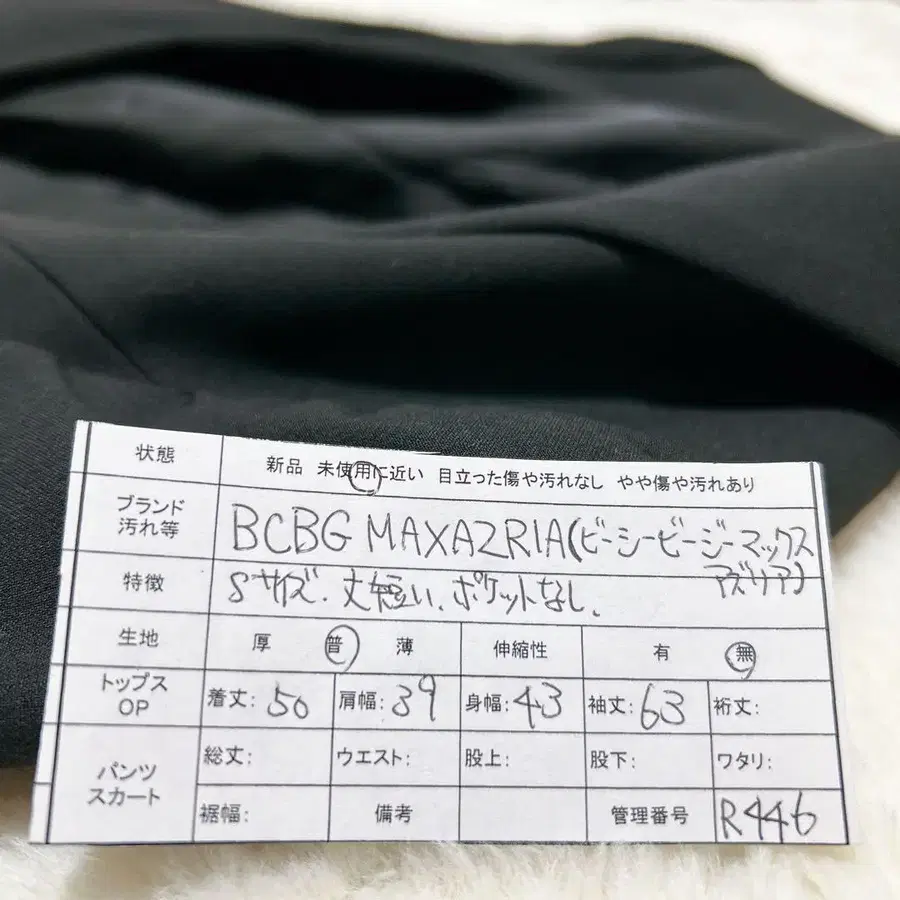 状態 新品 未使用に近い 目立った傷や汚れなし やや傷や汚れあり
ブランド
汚れ等
BCBG MAXAZRIA(ビーシービージーマックス
アズリア)
特徴 Sサイズ.丈短い.ポケットなし.
生地 厚 普 薄 伸縮性 有 無
トップス
OP
着丈: 50 肩幅: 39 身幅: 43 袖丈: 63 裄丈:
パンツ
スカート
総丈: ウエスト: 股上: 股下: ワタリ:
裾幅: 備考 管理番号 R446